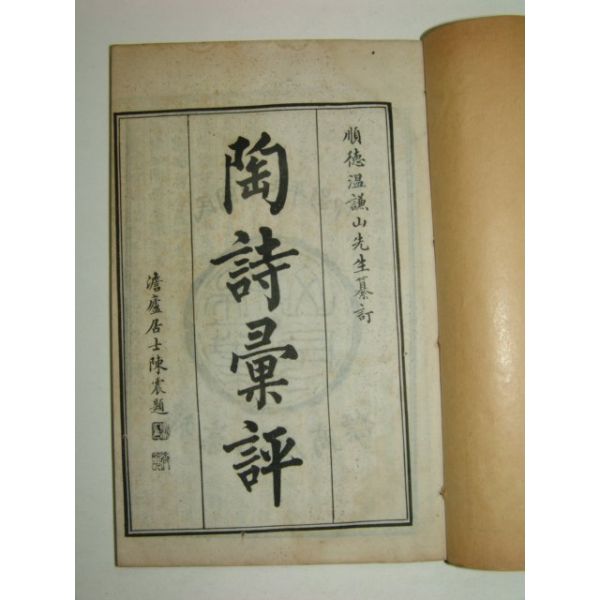 順德温謙山先生纂訂
陶詩彙評
澹廬居士陳震題